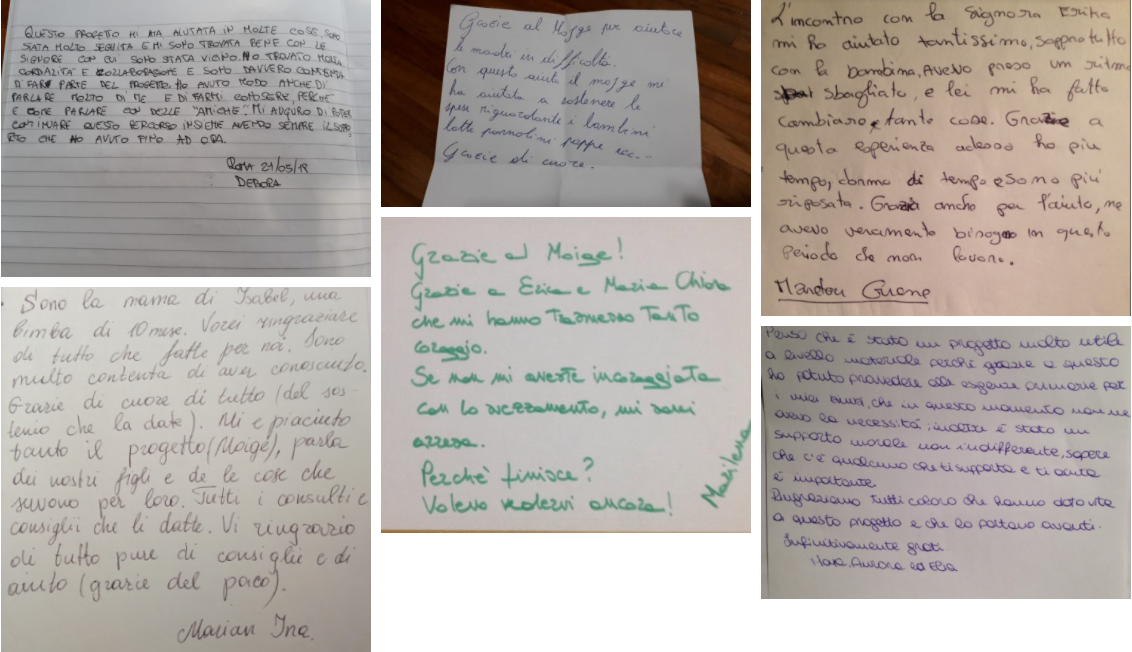 QUESTO PROGETTO MI HA AIUTATA IN MOLTE COSE, SONO
STATA MOLTO SEGUITA E MI SONO TROVATA BENE CON LE
SIGNORE CON CUI SONO STATA VICINO. HO TROVATO MOLTA
CORDIALITA' E COLLABORAZIONE E SONO DAVVERO CONTENTA
DI FAR PARTE DEL PROGETTO. HO AVUTO MODO ANCHE DI
PARLARE MOLTO DI ME E DI FARMI CONOSCERE, PERCHE'
E' COME PARLARE CON DELLE "AMICHE". MI AUGURO DI POTER
CONTINUARE QUESTO PERCORSO INSIEME AVENDO SEMPRE IL SUPPO
RTO CHE HO AVUTO FINO AD ORA.
ROMA 21/05/18
DEBORA
Sono la mama di Isabel, una
bimba di 10 mese. Vorei ringraziare
di tutto che fatte per noi. Sono
multo contenta di aver conosciuto.
Grazie di cuore di tutto (del sos-
tenio che la date). Mi e piaciuto
tanto il progetto (Moige), parla
dei nostri figli e de le cose che
servono per loro. Tutti i consulti e
consiglii che li datte. Vi ringrazio
di tutto pure di consiglii e di
aiuto (grazie del paco).
Marian Ina.
Grazie al Moige per aiutare
le madri in difficoltà.
Con questo aiuto il moige mi
ha aiutata a sostenere le
spese riguardante i bambini
latte pannolini pappe ecc...
Grazie di cuore.
Grazie al Moige!
Grazie a Erica e Maria Chiara
che mi hanno trasmesso tanto
coraggio.
Se non mi aveste incoraggiata
con lo svezzamento, mi sarei
arresa.
Perchè finisce?
Volevo vedervi ancora!
Marilena
L'incontro con la Signora Erika
mi ha aiutato tantissimo, soppratutto
con la bambina, Avevo preso un ritmo
sbagliato, e lei mi ha fatto
Cambiare tante cose. Grazie a
questa esperienza adesso ho più
tempo, dormo di tempo e sono più
riposata. Grazie anche per l'aiuto, ne
avevo veramente bisogno in questo
periodo che non lavoro.
Mandou Guene
Penso che è stato un progetto molto utile
a livello materiale perchè grazie a questo
ho potuto provvedere alle esigenze primarie per
i miei bimbi, che in questo momento non ne
avevo la necessità; inoltre è stato un
supporto morale non indifferente, sapere
che c'è qualcuno che ti supporta e ti aiuta
è importante.
Ringraziamo tutti coloro che hanno dato vita
a questo progetto e che lo portano avanti.
Infinitivamente grati
Ilaria, Aurora ed Elia